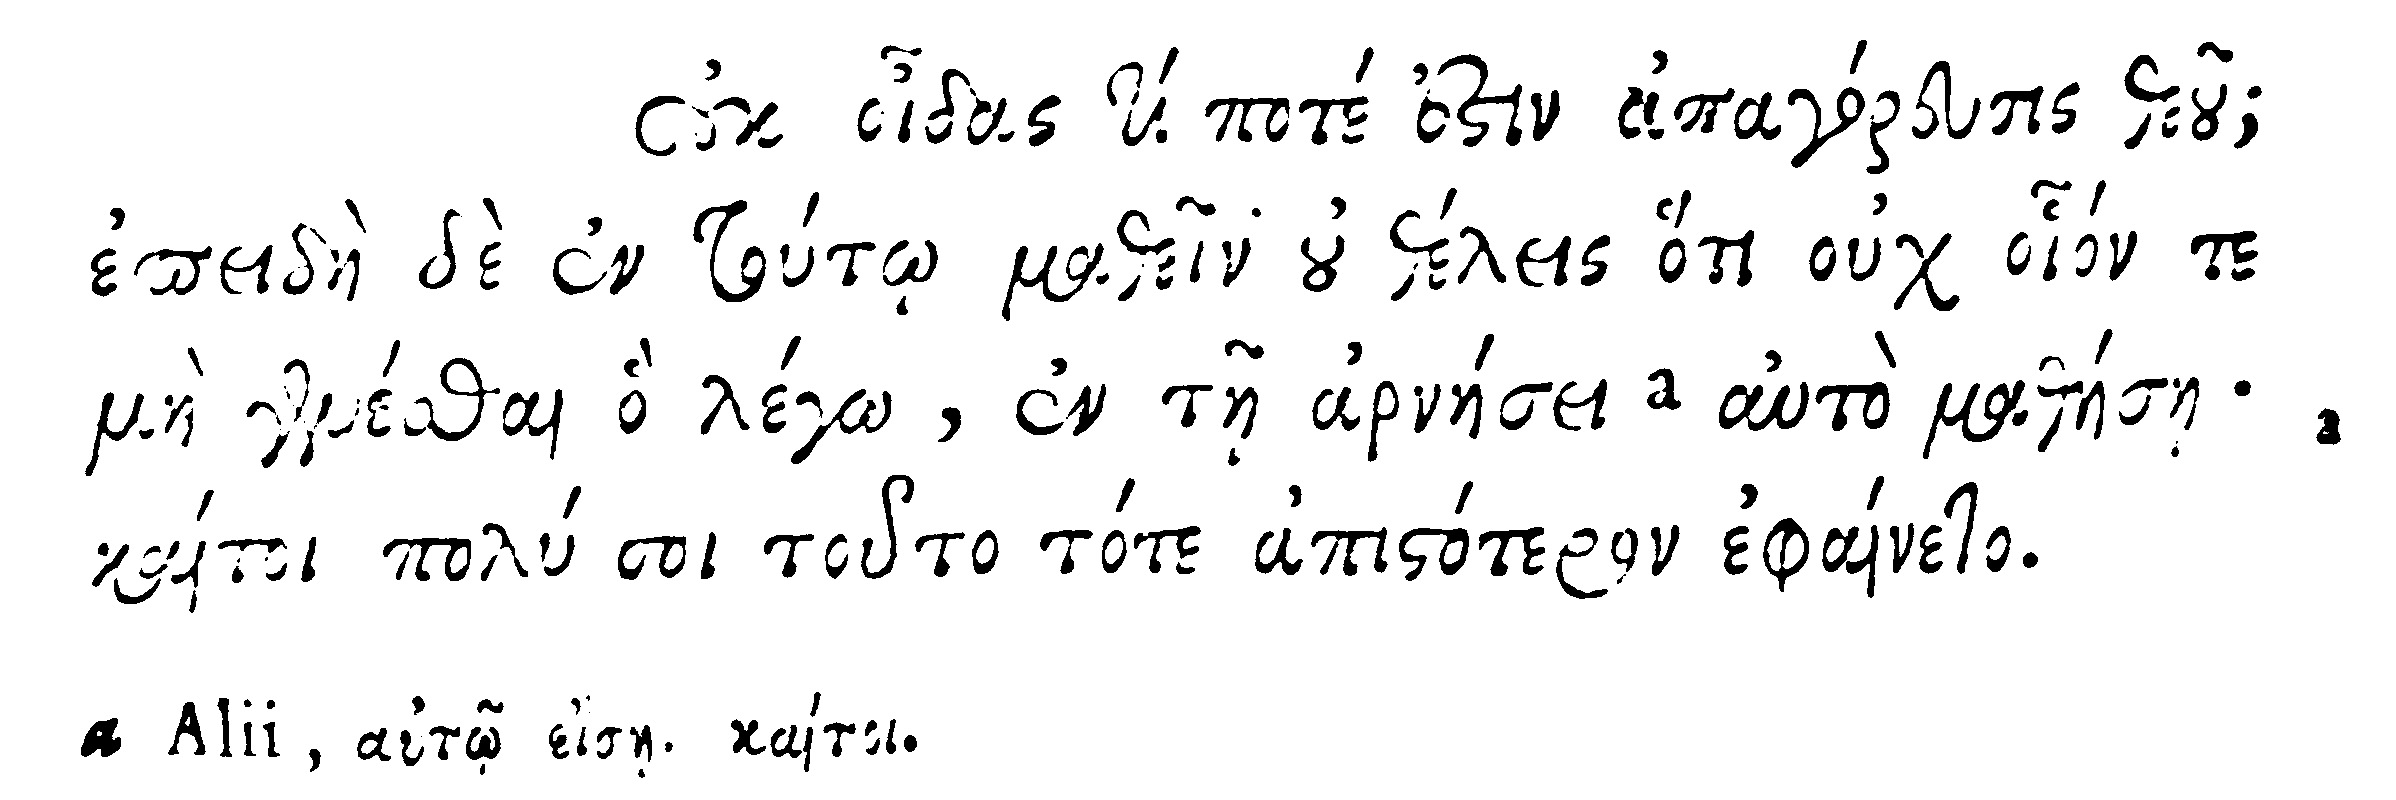 οὐκ οἶδας τί ποτέ ἐστιν ἀπαγόρευσις θεοῦ;
ἐπειδὴ δὲ ἐν τούτῳ μαθεῖν οὐ θέλεις ὅτι οὐχ οἷόν τε
μὴ γενέσθαι ὃ λέγω, ἐν τῇ ἀρνήσει a αὐτὸ μαθήσῃ· a
καίτοι πολύ σοι τοῦτο τότε ἀπιστότερον ἐφαίνετο.
a Alii, αὐτῷ εἴσῃ. καίτοι.